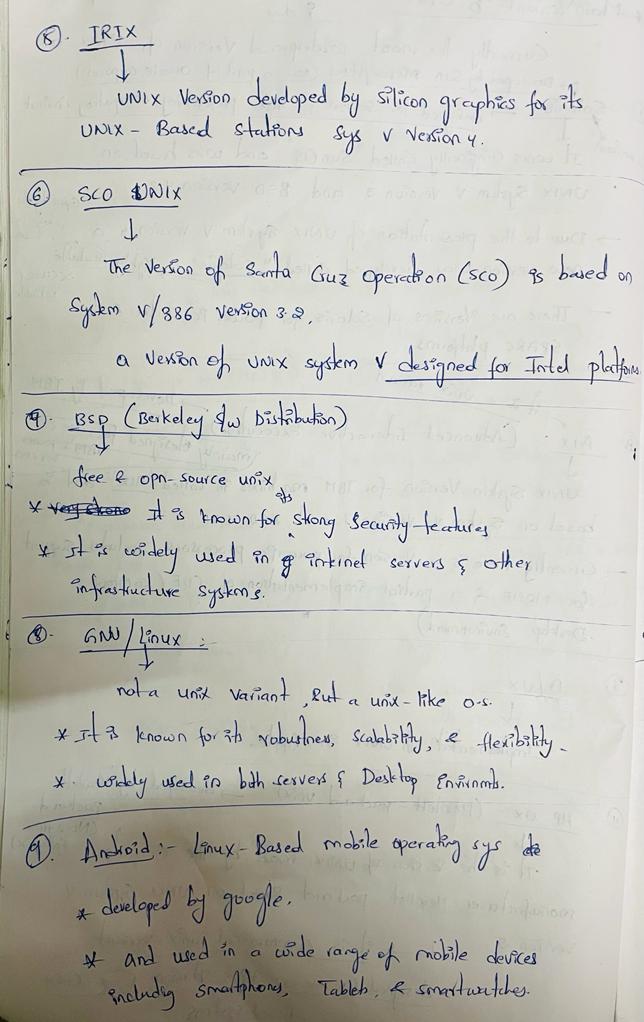 5. IRIX
UNIX Version developed by silicon graphics for its
UNIX - Based stations sys V Version 4.
6 SCO UNIX
The Version of Santa Cruz Operation (SCO) is based on
System V/386 Version 3.2.
a Version of UNIX system V designed for Intel platform.
7. BSD (Berkeley S/w Distribution)
free & opn-source unix
* It is known for its strong Security-features
* It is widely used in intrinet servers & other
infrastructure systems.
8. GNU/Linux :-
not a unix variant, But a unix-like o.s.
* It is known for its robustness, scalability, & flexibility.
* widely used in both servers & Desktop Envirnmts.
9. Android :- Linux-Based mobile operating sys
* developed by google.
* and used in a wide range of mobile devices
including smartphons, Tablets, & smartwatches.